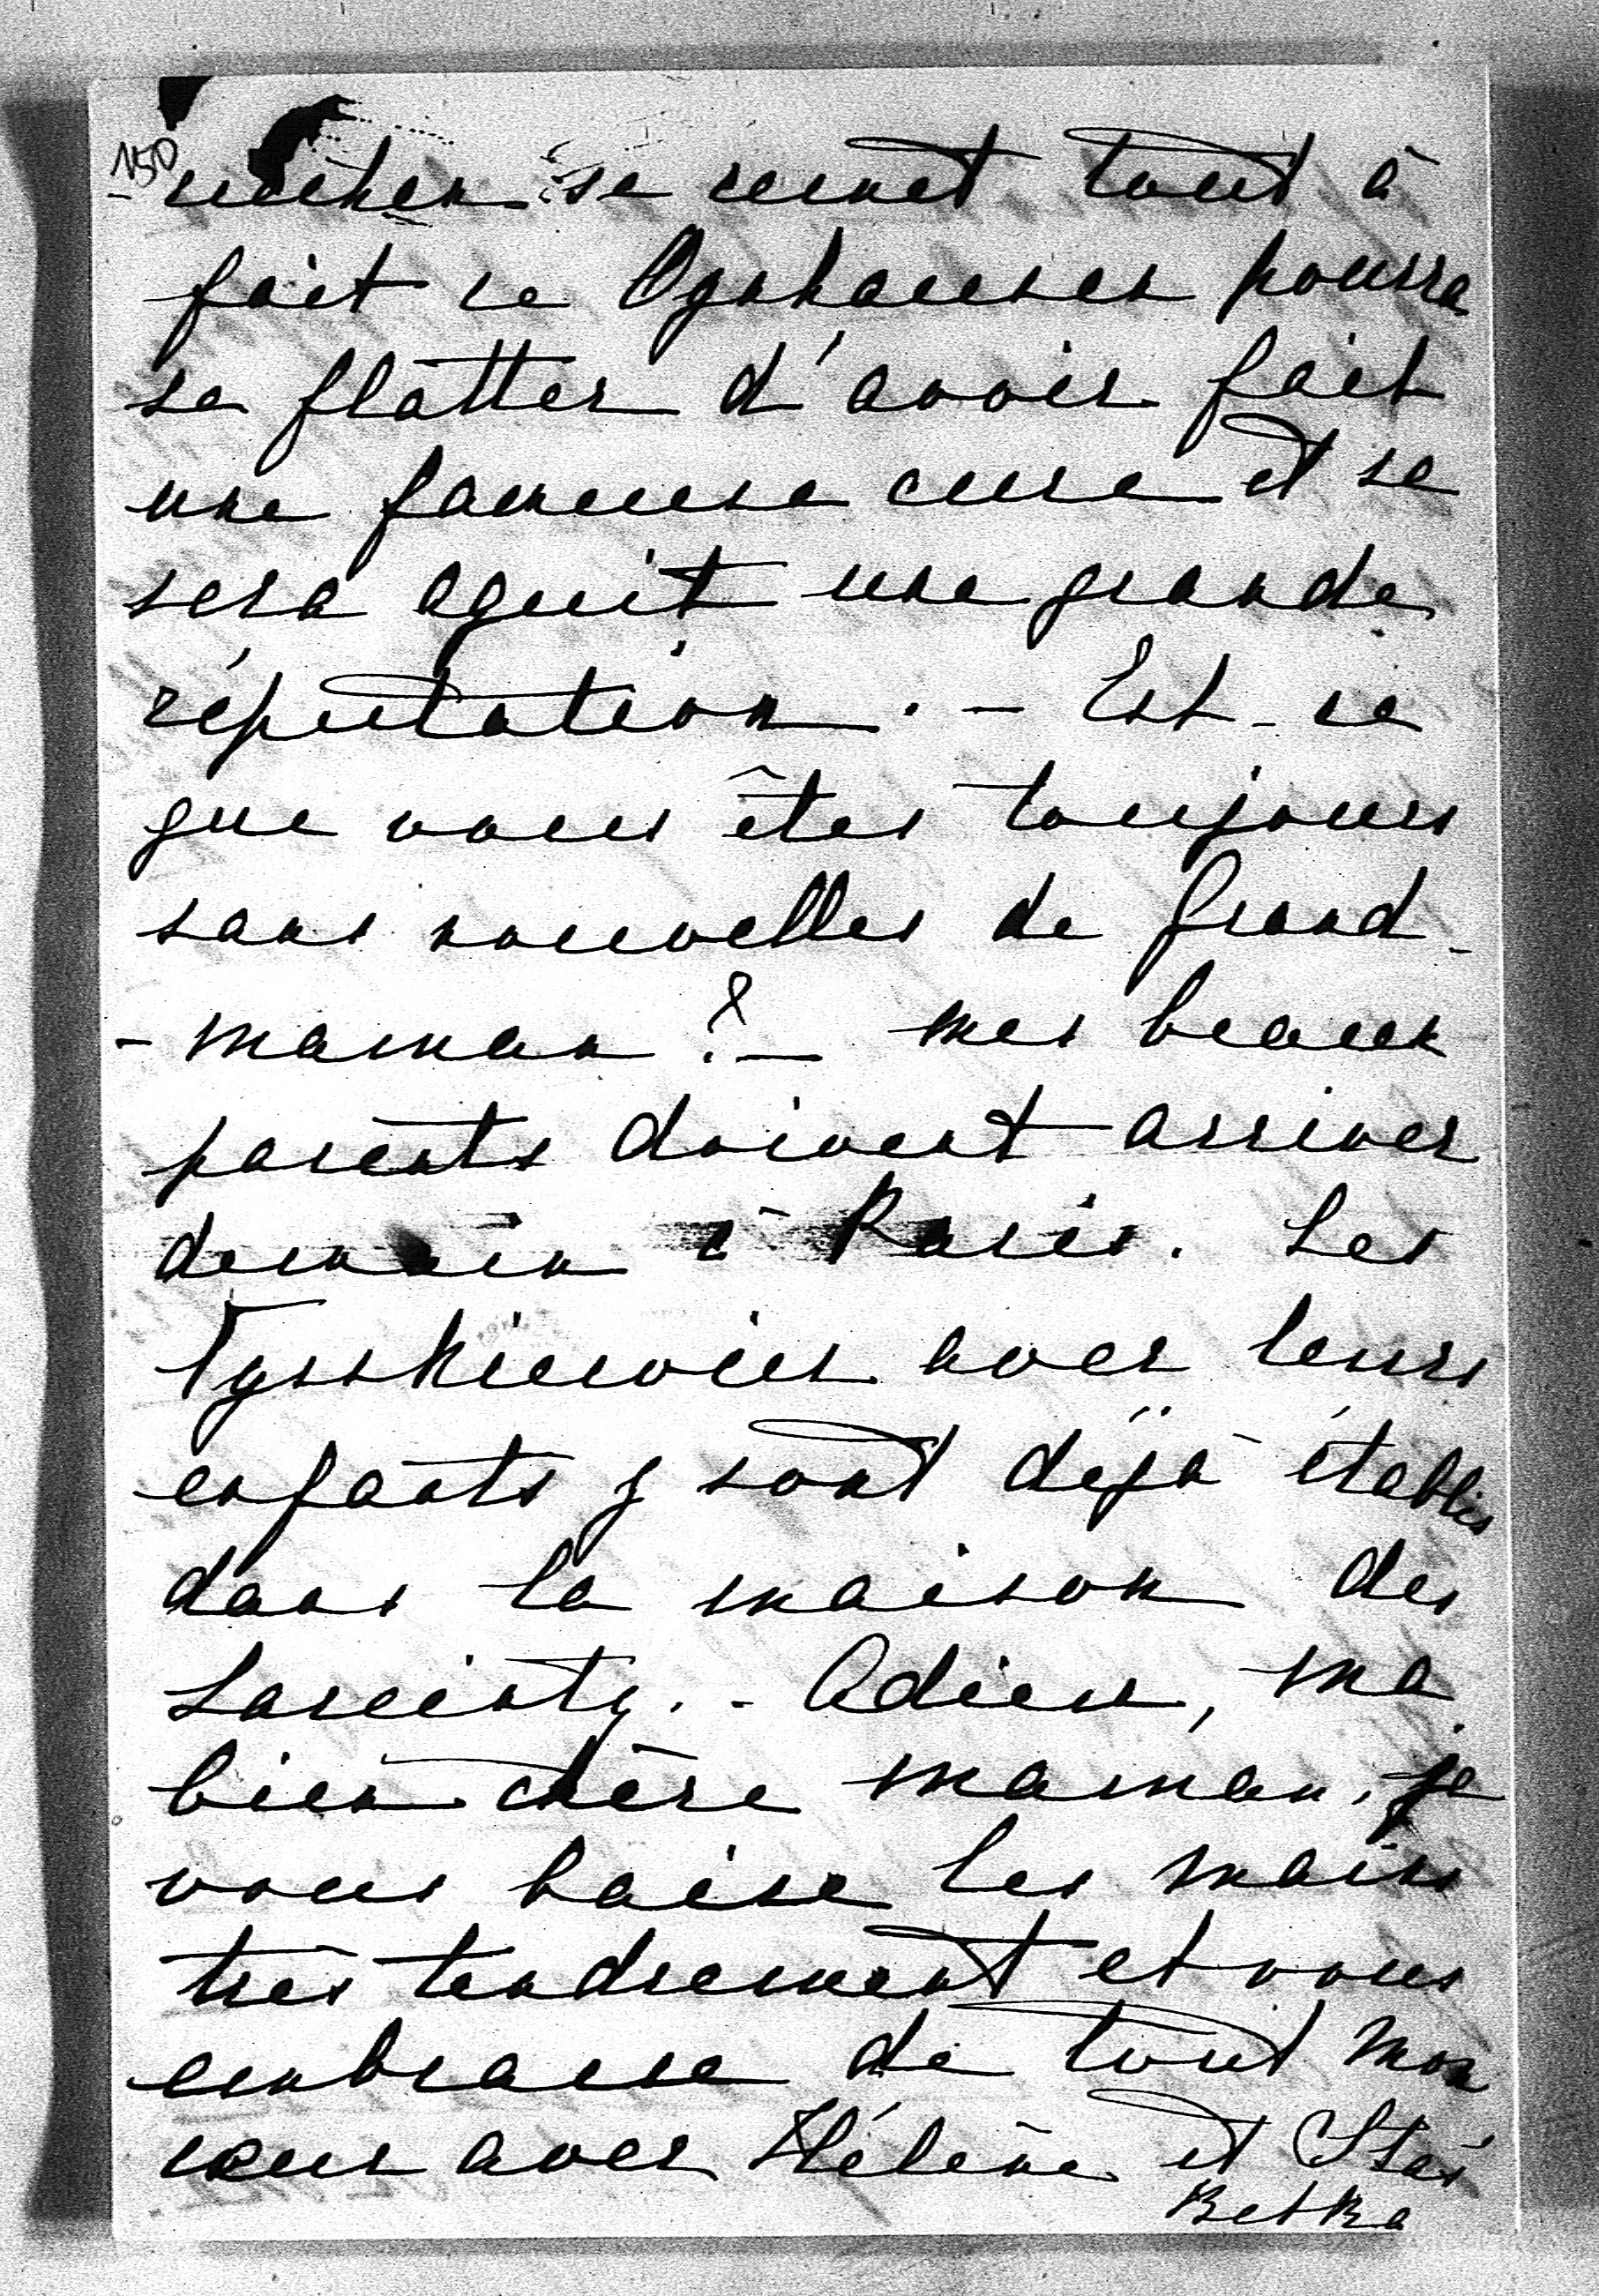 150
se remet tout à
fait ce Ogshauser pourra
se flatter d'avoir fait
une fameuse cure et se
sera aquit une grande
réputation. – Est-ce
que vous êtes toujours
sans nouvelles de Grand-
-maman? – Mes beaux
parents doivent arriver
demain à Paris. Les
Tysskiewicz avec leurs
enfants y sont déjà établis
dans la maison des
. - Adieu, ma
bien chère maman, je
vous baise les mains
très tendrement et vous
embrasse de tout mon
cœur avec Hélène et Staś
Betka